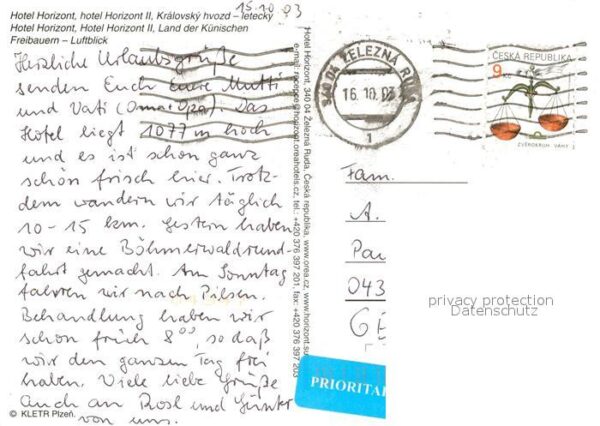 15.10.03
Hotel Horizont, hotel Horizont II, Královský hvozd – letecký
Hotel Horizont, Hotel Horizont II, Land der Künischen
Freibauern – Luftblick
Herzliche Urlaubsgrüße
senden Euch Eure Mutti
und Vati (Oma+Opa). Das
Hotel liegt 1077 m hoch
und es ist schon ganz
schön frisch hier. Trotz-
dem wandern wir täglich
10-15 km. Gestern haben
wir eine Böhmerwaldrund-
fahrt gemacht. Am Sonntag
fahren wir nach Pilsen.
Behandlung haben wir
schon früh 8⁰⁰, so daß
wir den ganzen Tag frei
haben. Viele liebe Grüße
auch an Rosl und Günter
von uns.
© KLETR Plzeň.
Hotel Horizont, 340 04 Železná Ruda, Česká republika, www.orea.cz, www.horizont.
e-mail: recepce@horizont.oreahotels.cz, tel.: +420 376 397 201, fax: +420 376 397 203
340 04 ŽELEZNÁ RUDA
16.10.03
1
ČESKÁ REPUBLIKA
9 Kč
ZVĚROKRUH VÁHY
Fam.
A.
Pau
043
GE
privacy protection
Datenschutz
PRIORITAI